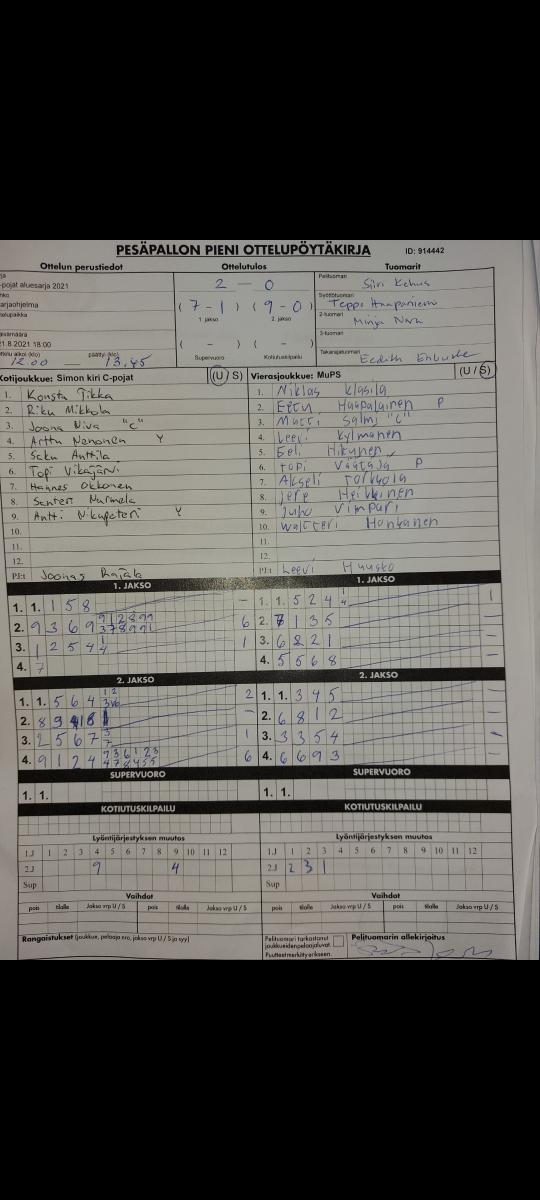 PESÄPALLON PIENI OTTELUPÖYTÄKIRJA ID: 914442
Ottelun perustiedot Ottelutulos Tuomarit
-pojat aluesarja 2021
2 - 0
Pelituomari Siiri
(7-1) (9-0)
1. jakso 2. jakso
Syöttötuomari Teppo Haapaniemi
2-tuomari Minja
3-tuomari
(-) (-)
Supervuoro Kotiutuskilpailu
Takarajatuomari Eedith
21.8.2021 18:00
ottelu alkoi (klo) päättyi (klo)
12.00 - 13.45
Kotijoukkue: Simon kiri C-pojat (U/ S)
1. Konsta Tikka
2. Riku Mikkola
3. Joona Niva "C"
4. Arttu Nenonen Y
5. Saku Anttila
6. Topi Vikajärvi
7. Hannes Okkonen
8. Santeri Nurmela
9. Antti Nikupeteri Y
10.
11.
12.
PJ:t Joonas Rajala
Vierasjoukkue: MuPS (U / S)
1. Niklas Klasila
2. Eetu Haapalainen P
3. Matti Salmi "C"
4. Leevi Kylmänen
5. Eeli Hikunen
6. Topi Väätäjä P
7. Akseli Torkkola
8. Jere Heikkinen
9. Juho Vimpari
10. Waltteri Honkanen
11.
12.
PJ:t Leevi Huusko
1. JAKSO 1. JAKSO
1. 1. 1 5 8 -
2. 9 3 6 9 6
3. 1 2 5 4 1
4. 7
1. 1. 5 2 4 1
2. 7 1 3 5 -
3. 6 8 2 1 -
4. 5 5 6 8 -
2. JAKSO 2. JAKSO
1. 1. 5 6 4 2
2. 8 9 -
3. 2 5 6 7 1
4. 9 1 2 4 6
1. 1. 3 4 5 -
2. 6 8 1 2 -
3. 3 3 5 4 -
4. 6 6 9 3 -
SUPERVUORO SUPERVUORO
1. 1. 1. 1.
KOTIUTUSKILPAILU KOTIUTUSKILPAILU
Lyöntijärjestyksen muutos Lyöntijärjestyksen muutos
1.J 1 2 3 4 5 6 7 8 9 10 11 12 1.J 1 2 3 4 5 6 7 8 9 10 11 12
2.J 9 4 2.J 2 3 1
Sup Sup
Vaihdot Vaihdot
pois tilalle Jakso vrp U / S pois tilalle Jakso vrp U / S pois tilalle Jakso vrp U / S pois tilalle Jakso vrp U / S
Rangaistukset (joukkue, pelaaja nro, jakso vrp U / S ja syy)
Pelituomari tarkastanut
joukkueiden pelaajaluvat.
Puutteet merkitty erikseen.
Pelituomarin allekirjoitus